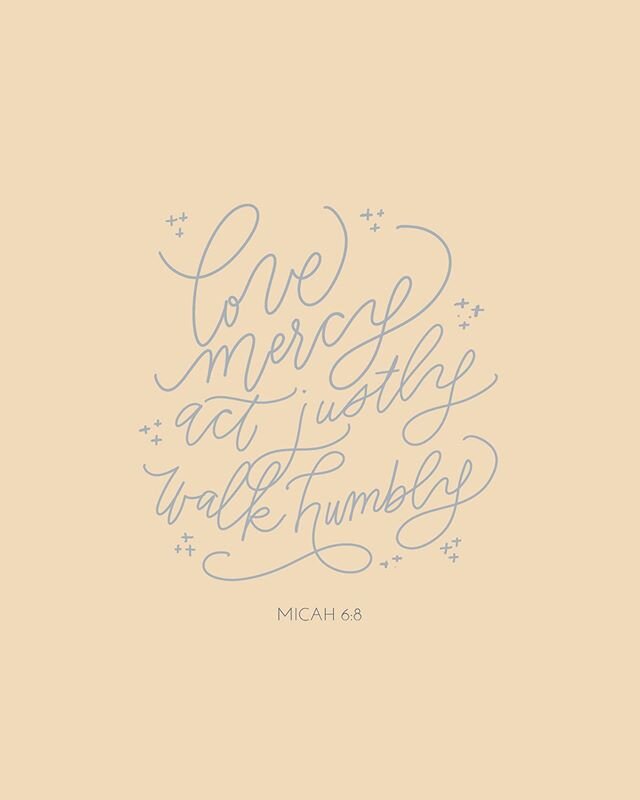 love
mercy
act justly
walk humbly
MICAH 6:8